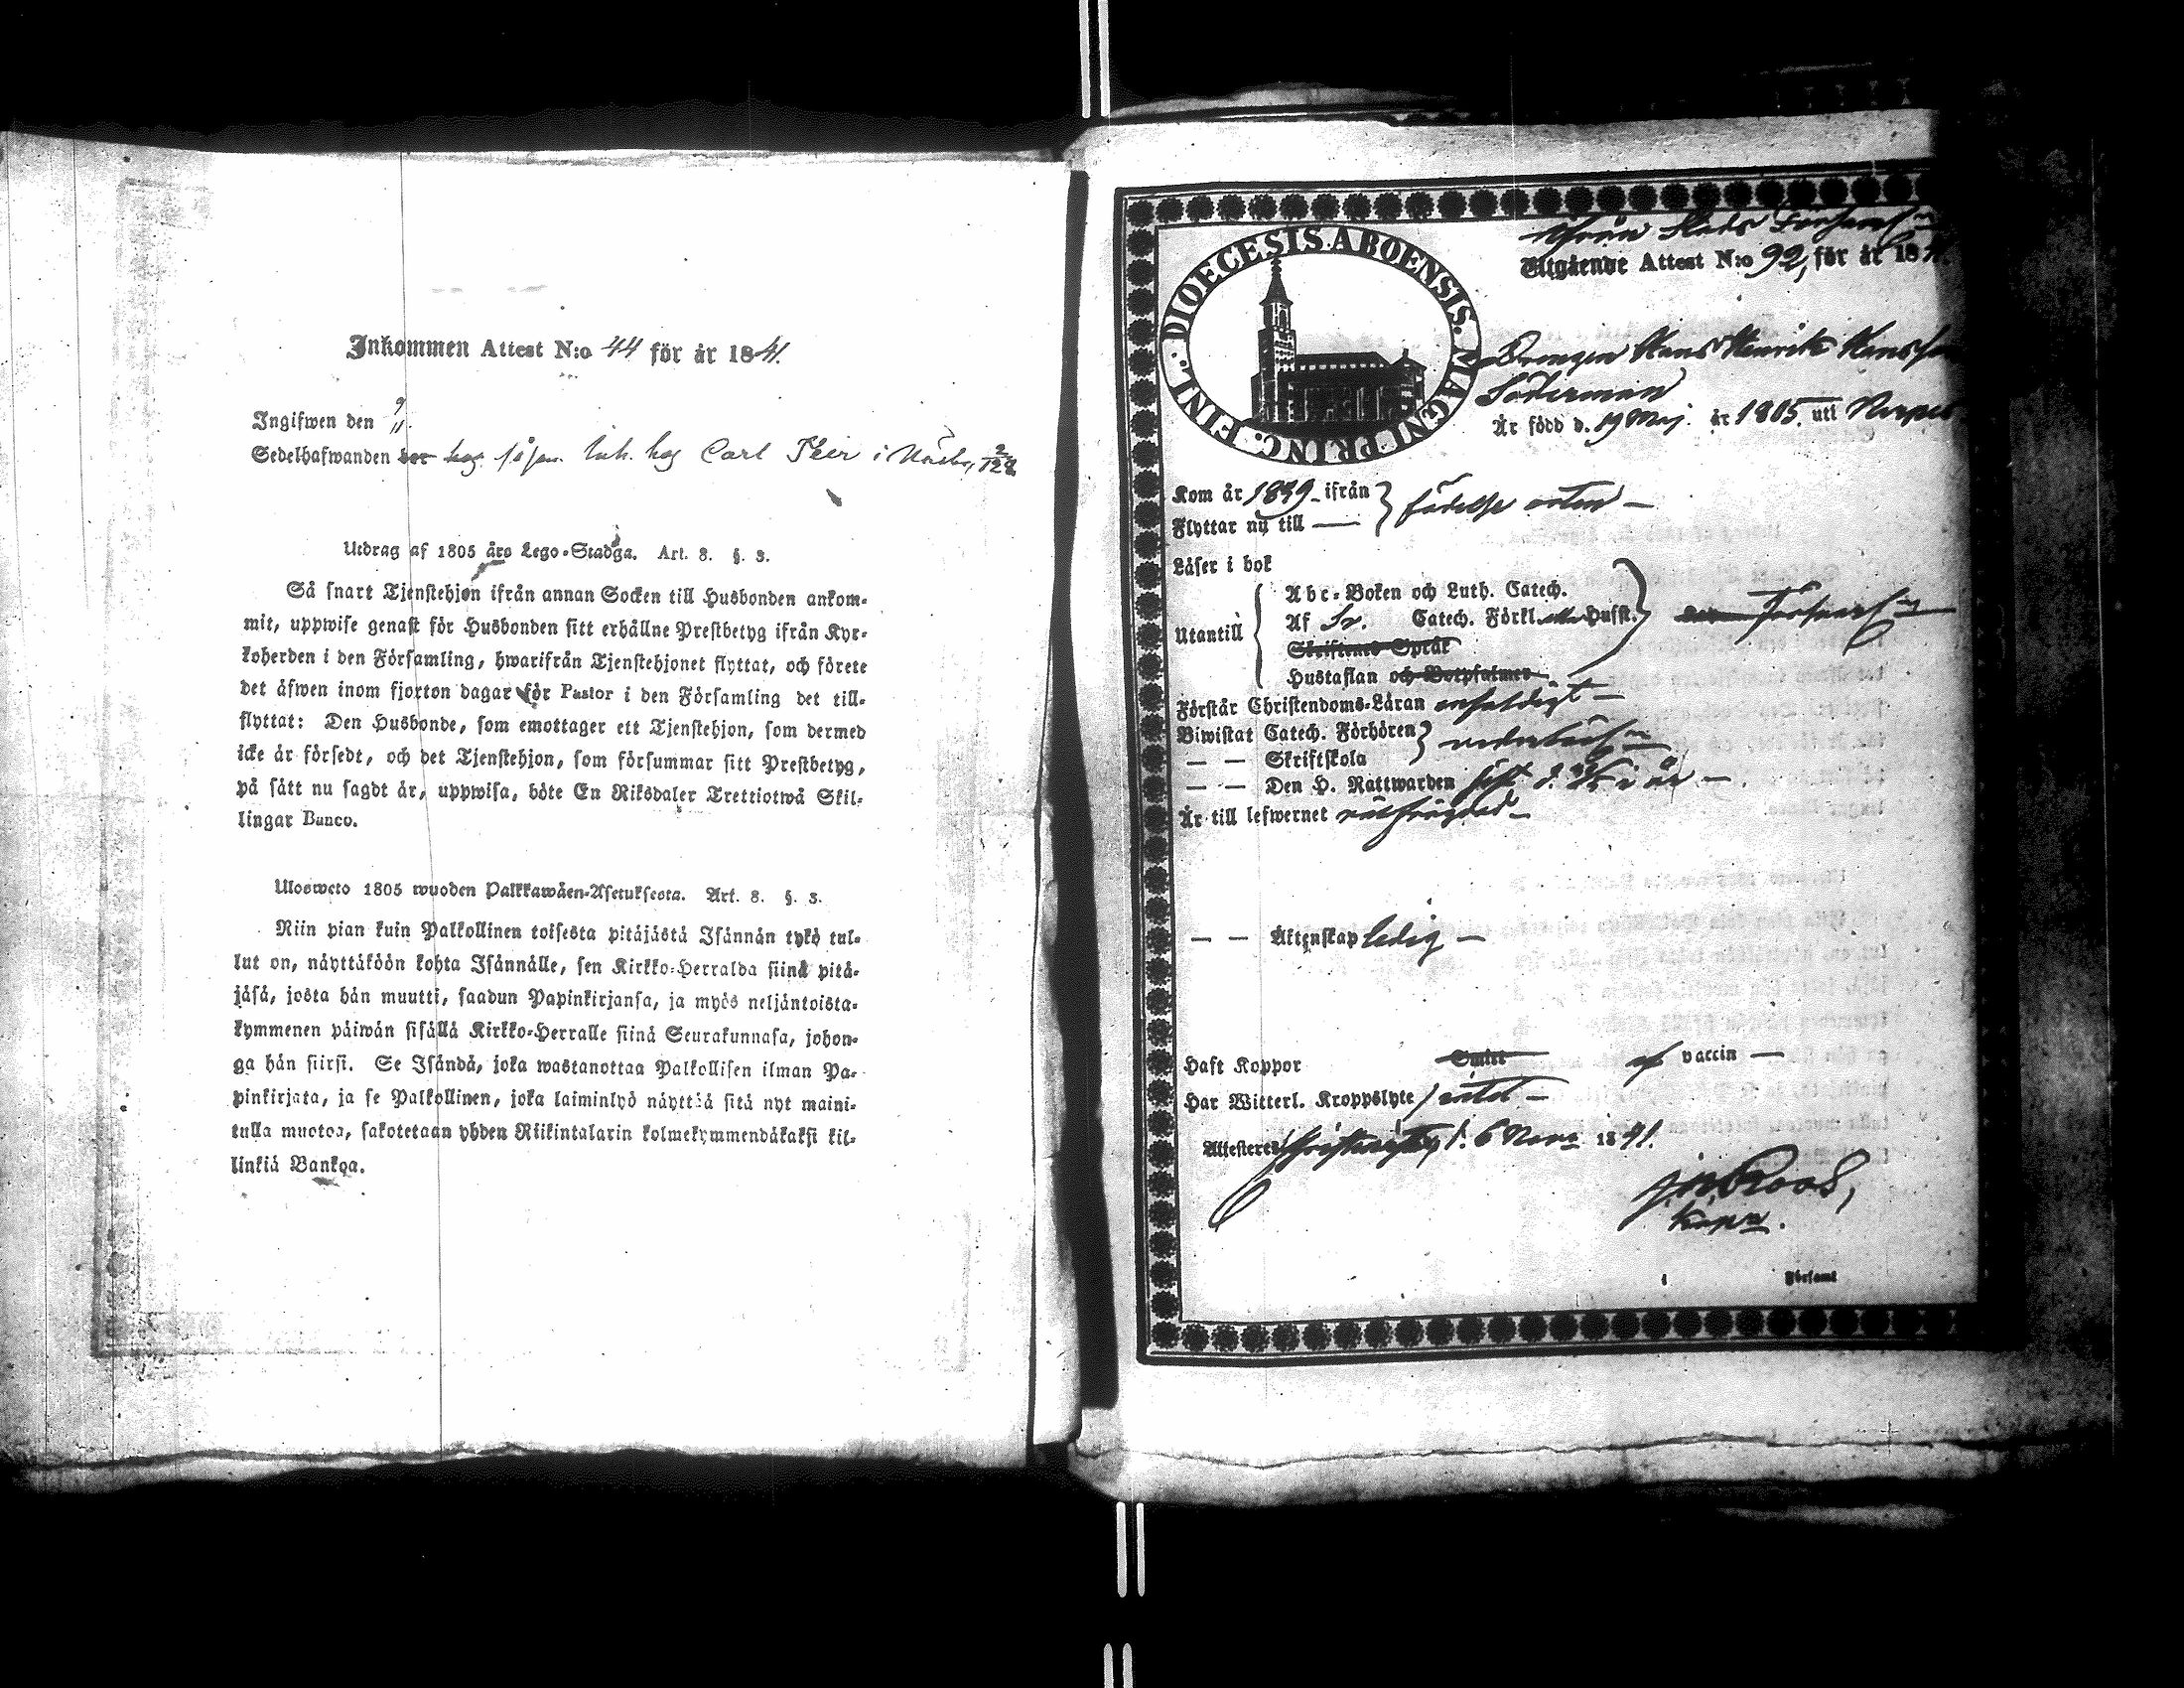 Inkommen Attest N:o 44 för år 1841.
Ingifwen den 9/11.
Sedelhafwanden hos Carl i
Utdrag af 1805 års Lego-Stadga. Art. 8. §. 3.
Så snart Tjenstehjon ifrån annan Socken till Husbonden ankom-
mit, uppwise genast för Husbonden sitt erhållne Prestbetyg ifrån Kyr-
koherden i den Församling, hwarifrån Tjenstehjonet flyttat, och förete
det äfwen inom fjorton dagar för Pastor i den Församling det till-
flyttat: Den Husbonde, som emottager ett Tjenstehjon, som dermed
icke är försedt, och det Tjenstehjon, som försummar sitt Prestbetyg,
på sätt nu sagdt är, uppwisa, böte En Riksdaler Trettiotwå Skil-
lingar Banco.
Ulosweto 1805 wuoden Palkkawäen-Asetuksesta. Art. 8. §. 3.
Niin pian kuin Palkollinen toisesta pitäjästä Isännän tykö tul-
lut on, näyttäköön kohta Isännälle, sen Kirkko-Herralda siinä pitä-
jäsä, josta hän muutti, saadun Papinkirjansa, ja myös neljäntoista-
kymmenen päiwän sisällä Kirkko-Herralle siinä Seurakunnasa, johon-
ga hän siirsi. Se Isändä, joka wastanottaa Palkollisen ilman Pa-
pinkirjata, ja se Palkollinen, joka laiminlyö näyttää sitä nyt maini-
tulla muotoa, sakotetaan yhden Riikintalarin kolmekymmendäkaksi kil-
linkiä Bankoa.
DIOECESIS ABOENSIS. MAGNI PRINC. FINL.
Ifrån Stads Församl:n
Utgående Attest N:o 92, för år 1841.
Drengen Hans Henrik Hansson
Söderman
Är född d. 19 Maj år 1805. uti Nerpes
Kom år 1839 ifrån } födelse orten
Flyttar nu till
Läser i bok
Utantill { Abc-Boken och Luth. Catech.
Af Sv. Catech. Förkl. Husst.
Skriftenes Språk
Hustaflan och Botpsalmer
Förstår Christendoms-Läran enfaldigt
Biwistat Catech. Förhören }
— — Skriftskola
— — Den H. Nattwarden sist d. i år
Är till lefwernet wälfrägdad
— — Äktenskap ledig
Haft Koppor Smitt af vaccin
Har Witterl. Kroppslyte intet
Attesteres Christinestad d. 6 Nov. 1841.
Roos,
Kapn.
Församl